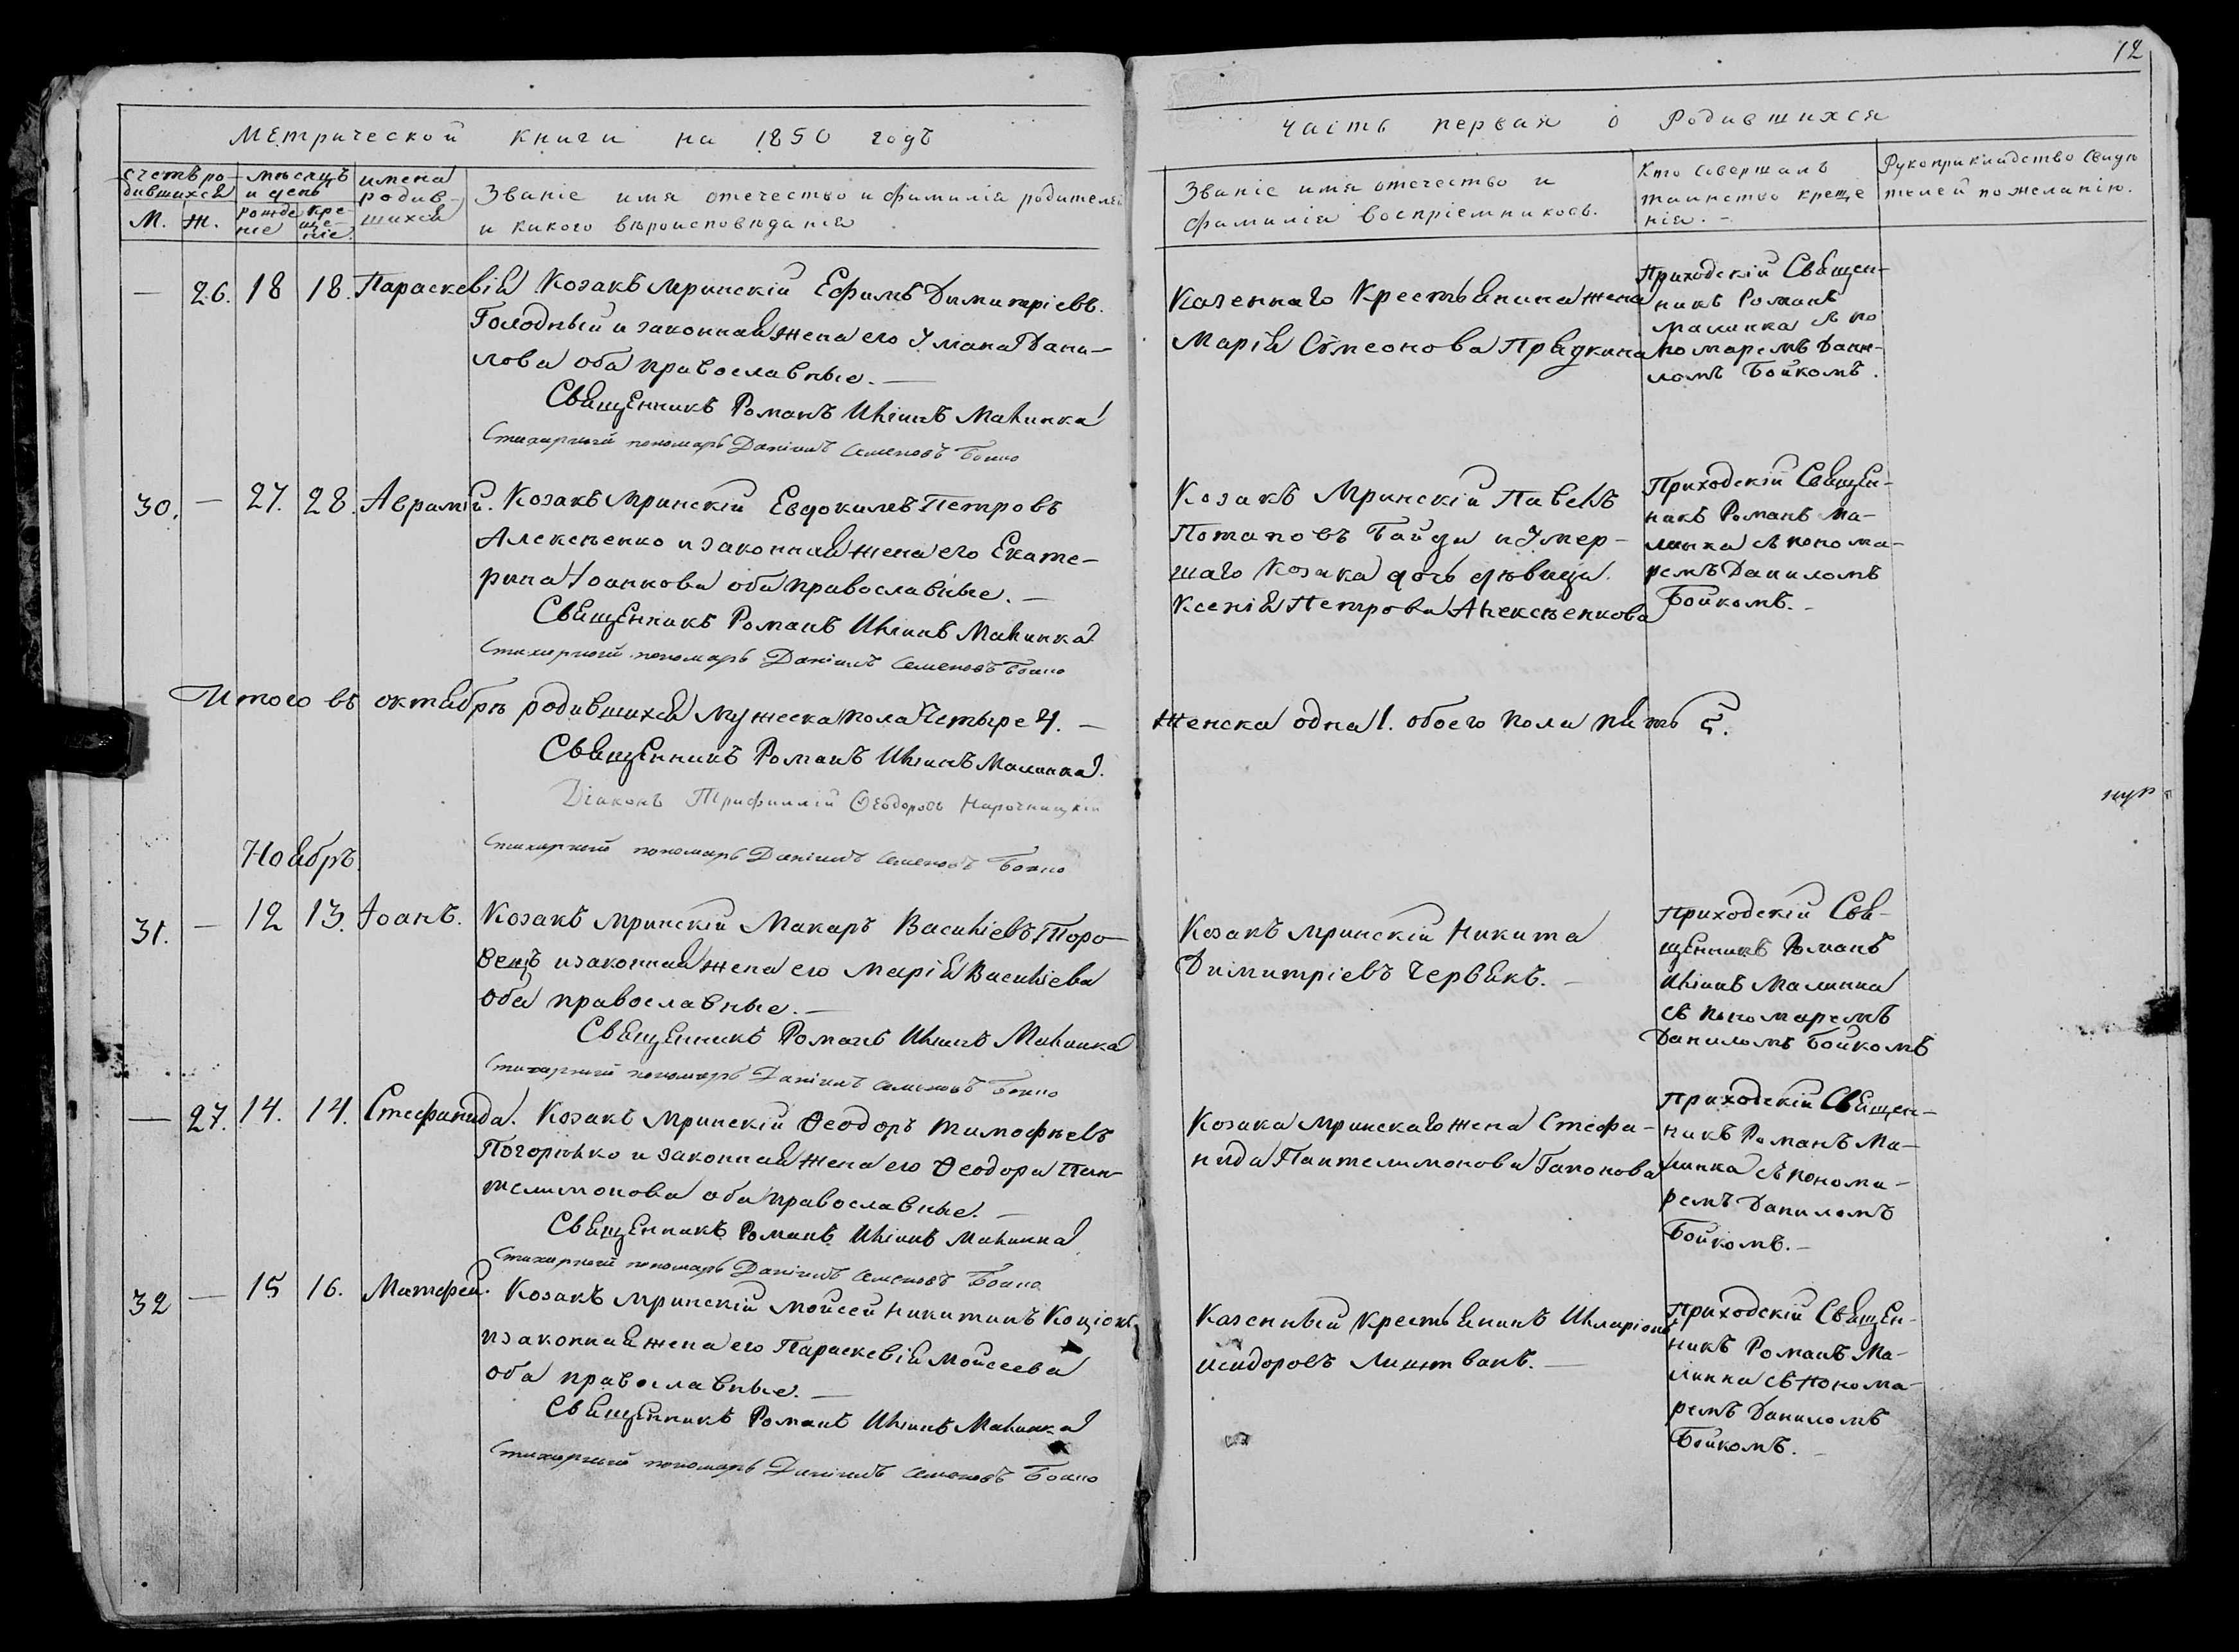 12
Метрической книги на 1850 годъ
Счетъ ро-
дившихся
М. Ж.
Мѣсяцъ
и день
рожде
ніе
Кре-
ще-
ніе.
имена
родив-
шихся
Званіе имя отечество и фимилія родителей
и какого вѣроисповѣданія
Часть первая о Родившихся
Званіе имя отечество и
фамилія воспріемниковъ.
Кто Совершалъ
таинство креще
нія. –
Рукоприкладство Свидѣ
телей по желанію.
— 26. 18 18. Параскевія Козакъ Мринскій Ефимъ Димитріевъ.
Голодный и законная жена его Уляна Дани-
лова оба православные. —
Священникъ Романъ Иліинъ Малинка
Стихарный пономарь Даніилъ Семеновъ Бойко
Казеннаго Крестьянина жена
Марія Сѵмеонова Прядкина
Приходскій Священ-
никъ Романъ
Малинка съ по
номаремъ Дани-
ломъ Бойкомъ.
30. — 27. 28. Аврамій. Козакъ Мринскій Евдокимъ Петровъ
Алексѣенко и законная жена его Екате-
рина Іоаннова оба православные. —
Священникъ Романъ Иліинъ Малинка
Стихарный пономарь Даніилъ Семеновъ Бойко
Козакъ Мринскій Павелъ
Потаповъ Гайда и Умер-
шаго Козака дочь дѣвица
Ксенія Петрова Алексѣенкова
Приходскій Священ-
никъ Романъ Ма-
линка съ понома-
ремъ Даниломъ
Бойкомъ. –
Итого въ октябрѣ родившихся Мужеска пола Четыре 4. —
Женска одна 1. обоего пола пять 5.
Священникъ Романъ Иліинъ Малинка.
Діаконъ Трифиллій Ѳеодоровъ Нарочницкій
Стихарный пономарь Даніилъ Семеновъ Бойко
Ноябрь.
31. — 12 13. Іоанъ. Козакъ Мринскій Макаръ Василіевъ Торо-
вецъ и законная жена его Марія Василіева
Оба православные. —
Священникъ Романъ Иліинъ Малинка
Стихарный пономарь Даніилъ Семеновъ Бойко
Козакъ Мринскій Никита
Димитріевъ Червякъ. –
Приходскій Свя-
щенникъ Романъ
Иліинъ Малинка
съ пономаремъ
Даниломъ Бойкомъ
— 27. 14. 14. Стефанида. Козакъ Мринскій Ѳеодоръ Тимофѣевъ
Погорѣлко и законная жена его Ѳеодора Пан-
телимонова оба православные. —
Священникъ Романъ Иліинъ Малинка
Стихарный пономарь Даніилъ Семеновъ Бойко
Козака Мринскаго жена Стефа-
нида Пантелимонова Гапонова
Приходскій Священ-
никъ Романъ Ма-
линка съ понома-
ремъ Даниломъ
Бойкомъ. –
32 — 15 16. Матфей. Козакъ Мринскій Мойсей Никитинъ
и законная жена его Параскевія Мойсеева
оба православные. —
Священникъ Романъ Иліинъ Малинка
Стихарный пономарь Даніилъ Семеновъ Бойко
Казенный Крестьянинъ Иларіонъ
Исидоровъ Линтваревъ. —
Приходскій Священ-
никъ Романъ Ма-
линка съ понома-
ремъ Даниломъ
Бойкомъ. –